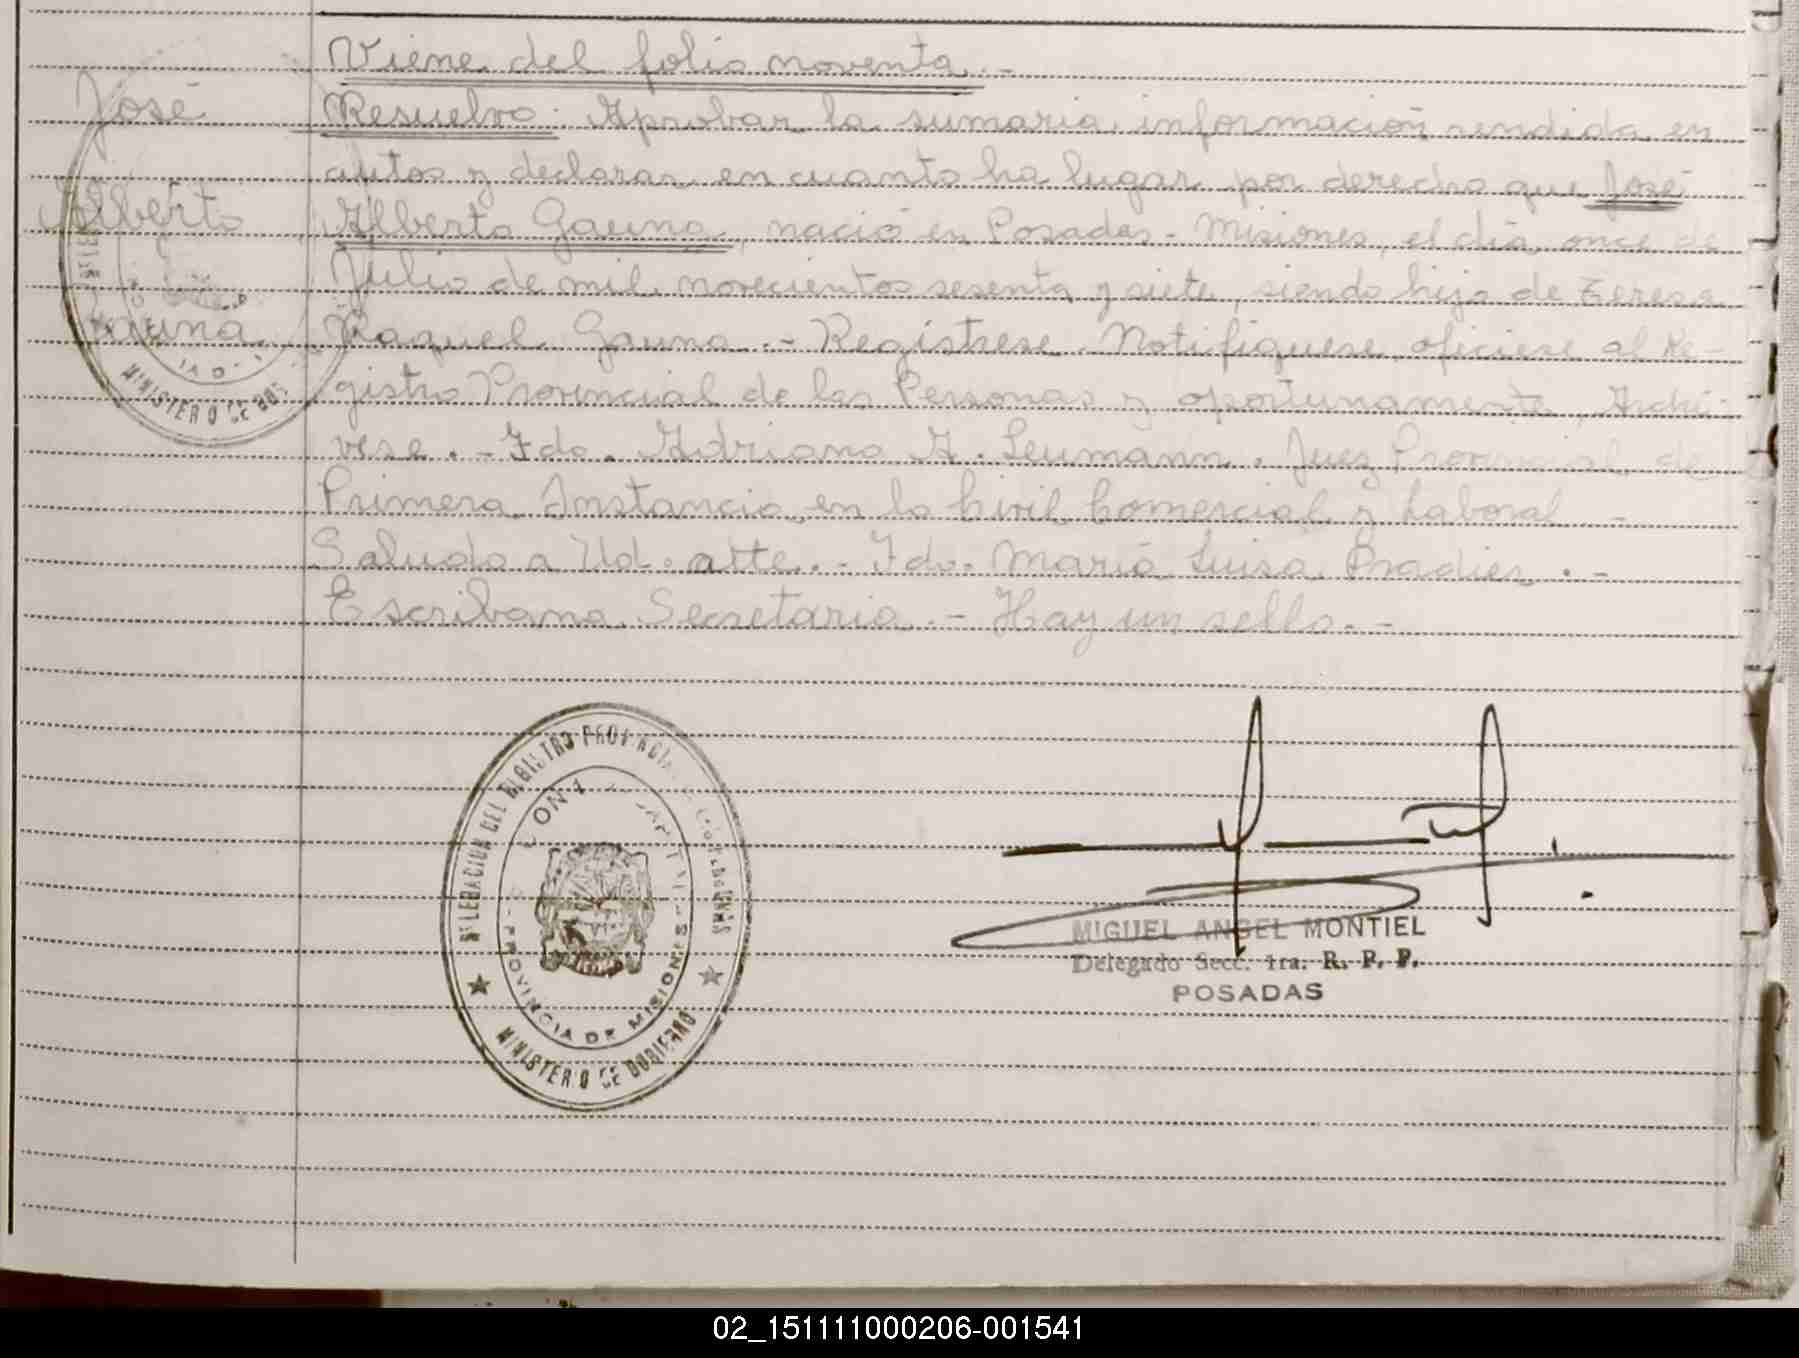 Viene del folio noventa.-
José
Resuelvo: Aprobar la sumaria información rendida en
autos y declarar en cuanto ha lugar por derecho que José
Alberto
Alberto Gauna, nació en Posadas - Misiones, el día once de
Julio de mil novecientos sesenta y siete, siendo hijo de Teresa
Gauna
Raquel Gauna.- Regístrese. Notifiquese, ofíciese al Re-
gistro Provincial de las Personas y oportunamente, Archí-
vese.- Fdo. Adriano A. Leumann. Juez Provincial de
Primera Instancia en lo Civil Comercial y Laboral -
Saludo a Ud. atte.- Fdo. María Luisa Pradier.-
Escribana Secretaria.- Hay un sello.-
MINISTERIO DE
DELEGACION DEL REGISTRO PROVINCIAL
PROVINCIA DE MISIONES
MINISTERIO DE GOBIERNO
MIGUEL ANGEL MONTIEL
Delegado Secc. 1ra. R. P. P.
POSADAS
02_151111000206-001541